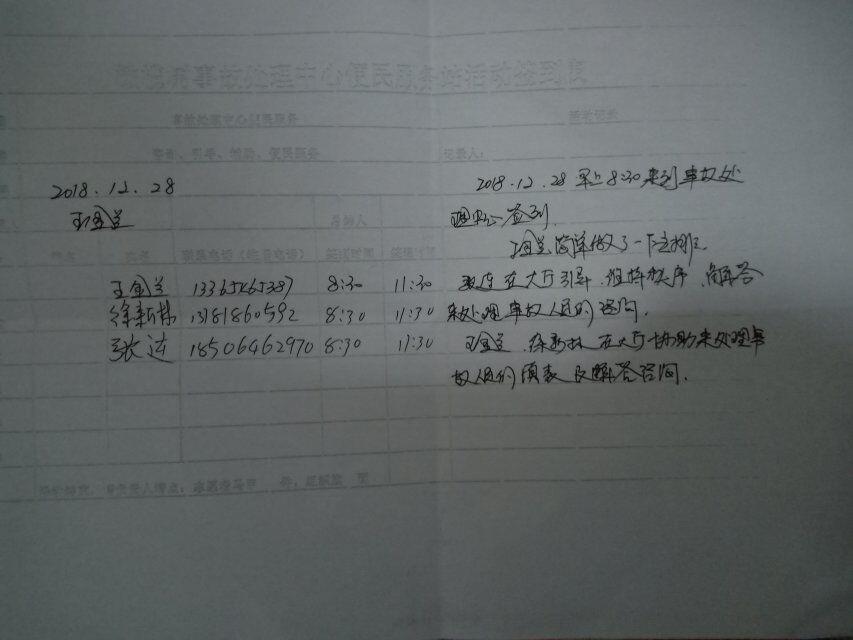 事故处理中心便民服务站活动签到表
事故处理中心便民服务 活动记录
引导、协助、便民服务 记录人：
2018.12.28
王金兰
负责人
姓名 联系电话 签到时间 签退时间
王金兰 13365465387 8:30 11:30
徐新林 13181860592 8:30 11:30
张达 18506462970 8:30 11:30
2018.12.28 早上8:30来到事故处
理中心签到
王金兰简单做了一下安排.
张达在大厅引导.维持秩序.解答
来处理事故人员的咨询.
王金兰.徐新林在大厅协助来处理事
故人员们填表及解答咨询.